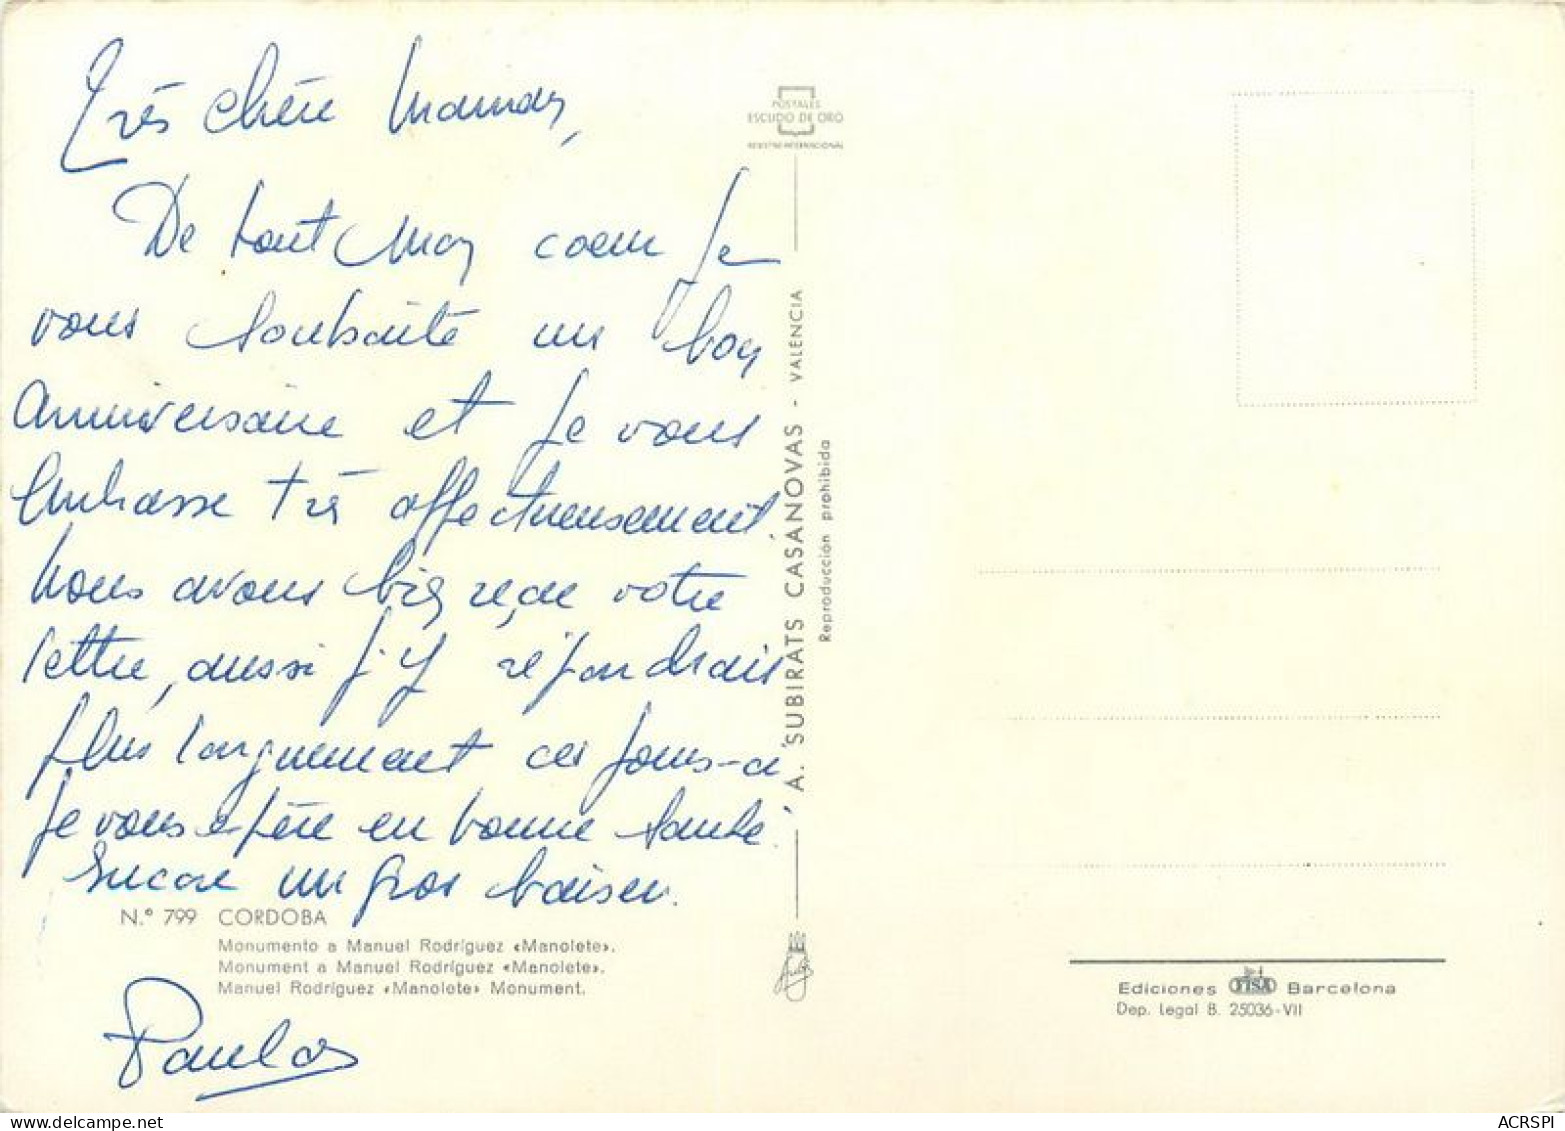 Très chère Maman,
De tout mon coeur je
vous souhaite un bon
anniversaire et je vous
embrasse très affectueusement.
Nous avons bien reçue votre
lettre, aussi j'y répondrais
plus longuement ces jours-ci
je vous espère en bonne santé.
Encore un gros baiser.
N.º 799 CORDOBA
Monumento a Manuel Rodríguez «Manolete».
Monument a Manuel Rodríguez «Manolete».
Manuel Rodríguez «Manolete» Monument.
POSTALES
ESCUDO DE ORO
REGISTRO INTERNACIONAL
A. SUBIRATS CASANOVAS - VALENCIA
Reproducción prohibida
Ediciones FISA Barcelona
Dep. Legal B. 25036-VII
delcampe.net
ACRSPI